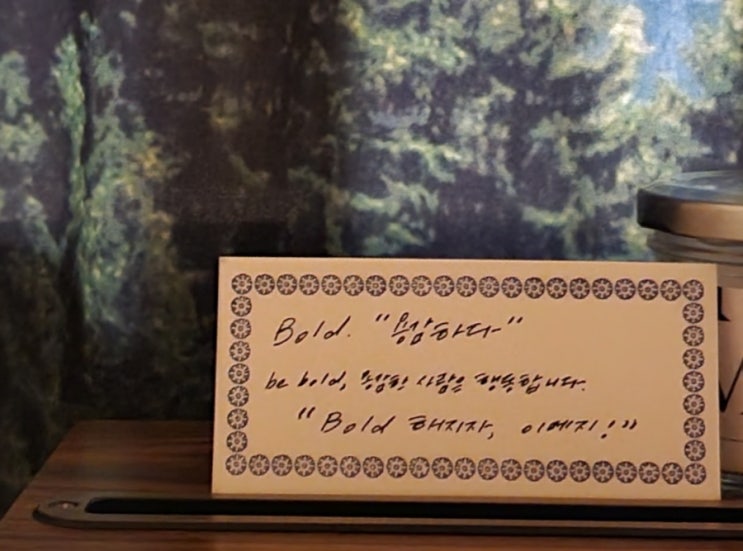 Bold. "용감하다"
be bold, 용감한 사람은 행동합니다.
"Bold 해지자, 이예지!"